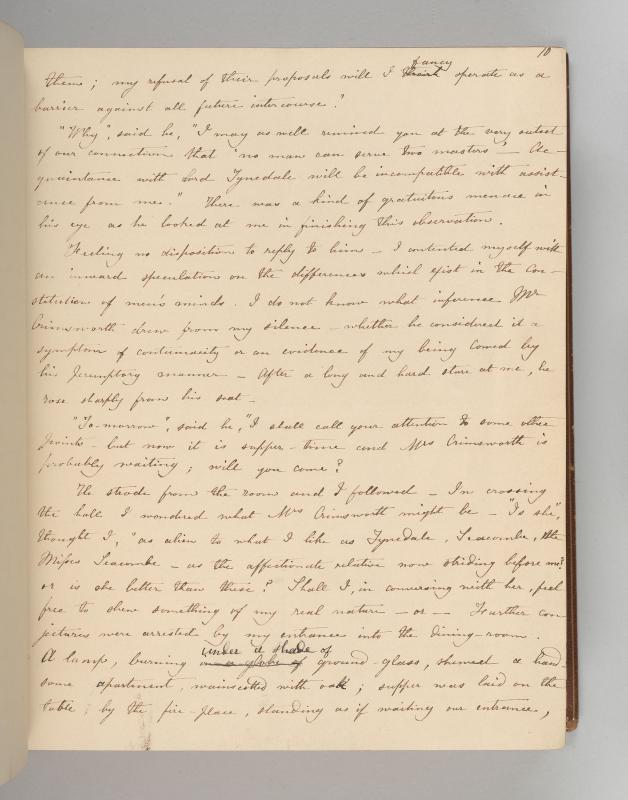 10
fancy
them; my refusal of their proposals will I think operate as a
barrier against all future intercourse."
"Why", said he, "I may as well remind you at the very outset
of our connection that 'no man can serve two masters' — Ac-
quaintance with Lord Tynedale will be incompatible with assist-
ance from me." There was a kind of gratuitous menace in
his eye as he looked at me in finishing this observation.
Feeling no disposition to reply to him — I contented myself with
an inward speculation on the differences which exist in the con-
stitution of men's minds. I do not know what inference Mr
Crimsworth drew from my silence — whether he considered it a
symptom of contumacity or an evidence of my being cowed by
his peremptory manner — After a long and hard stare at me, he
rose sharply from his seat —
"To-morrow", said he, "I shall call your attention to some other
points — but now it is supper-time and Mrs Crimsworth is
probably waiting; will you come?
He strode from the room and I followed — In crossing
the hall I wondered what Mrs Crimsworth might be — "Is she",
thought I, "as alien to what I like as Tynedale, Seacombe, the
Misses Seacombe — as the affectionate relative now striding before me?
or is she better than these? Shall I, in conversing with her, feel
free to shew something of my real nature — or — Further con-
jectures were arrested by my entrance into the dining-room.
under a shade of
A lamp, burning in a globe of ground-glass, shewed a hand-
some apartment, wainscotted with oak; supper was laid on the
table; by the fire-place, standing as if waiting our entrance,